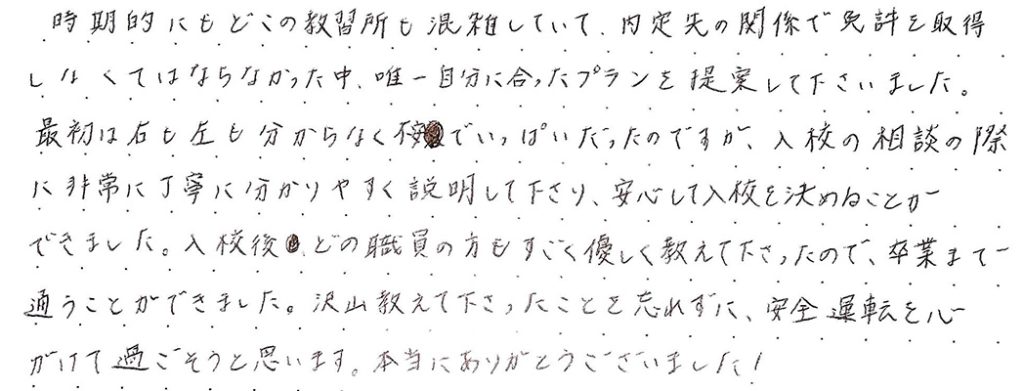 時期的にもどこの教習所も混雑していて、内定先の関係で免許を取得
しなくてはならなかった中、唯一自分に合ったプランを提案して下さいました。
最初は右も左も分からなく不安でいっぱいだったのですが、入校の相談の際
に非常に丁寧に分かりやすく説明して下さり、安心して入校を決めることが
できました。入校後、どの職員の方もすごく優しく教えて下さったので、卒業まで
通うことができました。沢山教えて下さったことを忘れずに、安全運転を心
がけて過ごそうと思います。本当にありがとうございました!